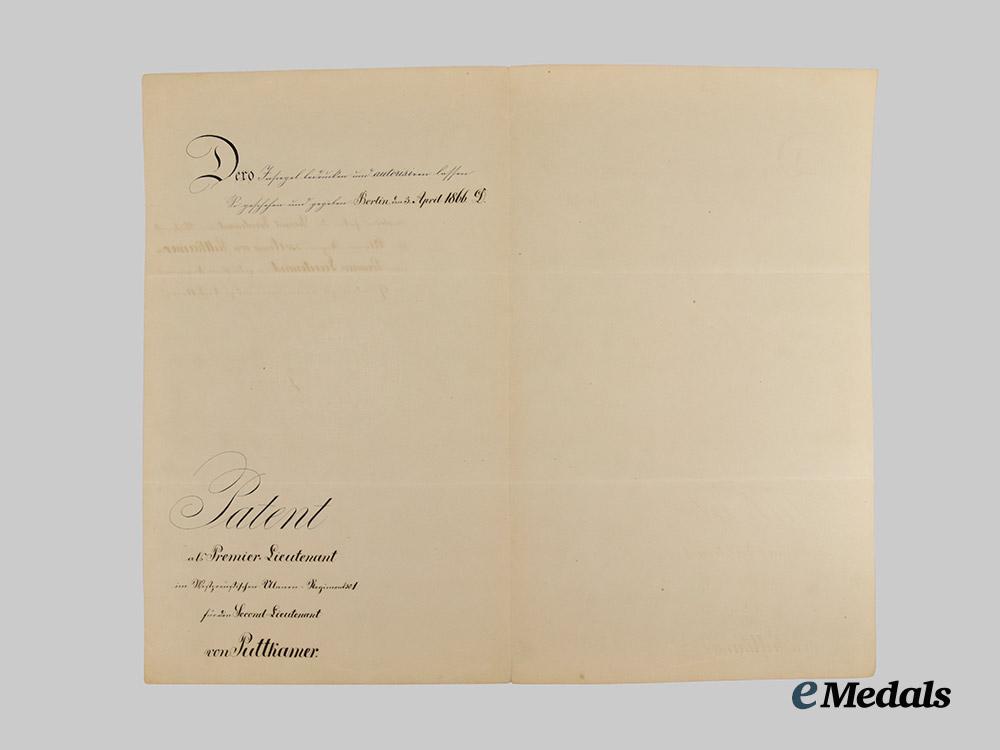 Dero Insiegel bedrucken und autorisiren lassen
So geschehen und gegeben Berlin den 3. April 1866
Patent
als Premier-Lieutenant
im Westpreußischen Ulanen-Regiment No 1
für den Second-Lieutenant
von Puttkamer.
eMedals